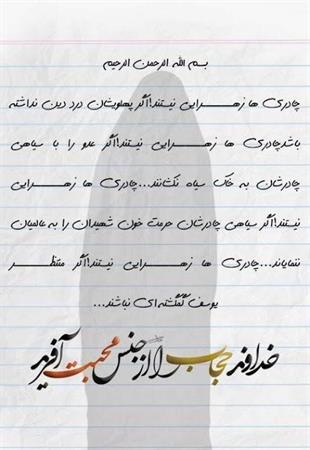 بسم الله الرحمن الرحیم
چادری ها زهـــرایی نیستند!اگر پهلویشان درد دین نداشته
باشد.چادری ها زهـــرایی نیستند!اگر عدو را با سیاهی
چادرشان به خاک سیاه نکشانند...چادری ها زهـــرایی
نیستند!اگر سیاهی چادرشان حرمت خون شهیدان را به عالمیان
ننمایاند...چادری ها زهـــرایی نیستند!اگر منتظر
یوسف گمگشته ای نباشند...
خداوند حجاب را از جنس محبت آفرید